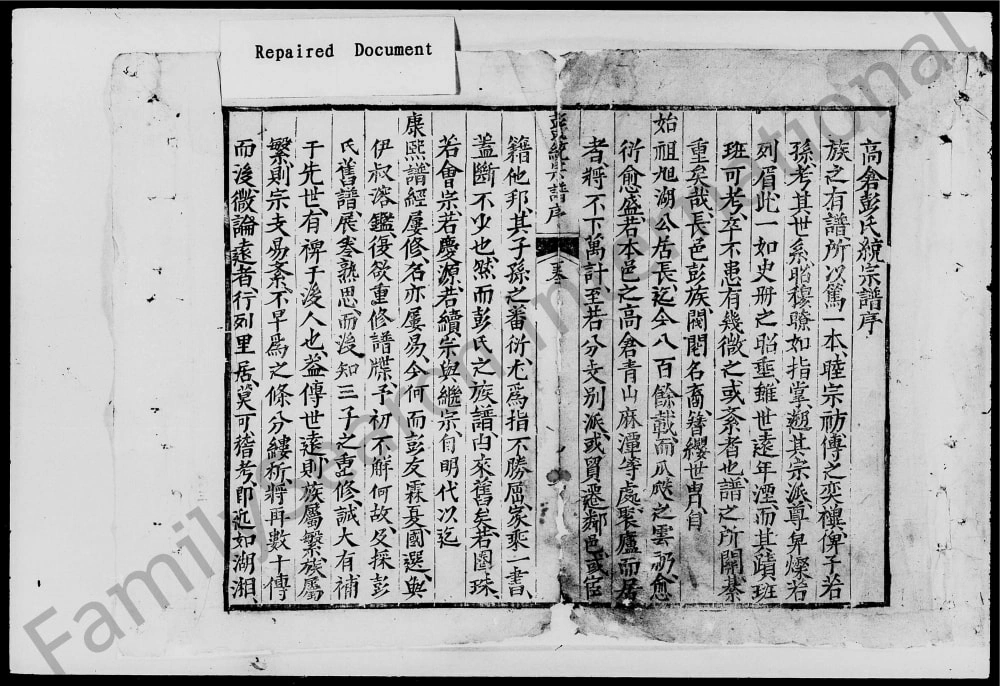 Repaired Document
高倉彭氏統宗譜序
族之有譜所以篤一本睦宗礽傳之奕禩俾子若
孫考其世系昭穆瞭如指掌遡其宗派尊卑燦若
列眉此一如史冊之昭垂雖世遠年湮而其蹟班
班可考卒不患有幾微之或紊者也譜之所關綦
重矣哉長邑彭族閥閱名裔簪纓世冑自
始祖旭湖公居長迄今八百餘載而瓜瓞之雲礽愈
衍愈盛若本邑之高倉青山麻潭等處聚廬而居
者將不下萬計至若分支別派或貿遷鄰邑或宦
彭氏統宗譜序
籍他邦其子孫之番衍尤爲指不勝屈家乘一書
蓋斷不少也然而彭氏之族譜由來舊矣若園珠
若會宗若慶源若續宗與繼宗自明代以迄
康熙譜經屢修名亦屢易今何而彭友霖憂國選與
伊叔溶鑑復欲重修譜牒予初不解何故及採彭
氏舊譜展卷熟思而後知三子之重修誠大有補
于先世有裨于後人也蓋傳世遠則族屬繁族屬
繁則宗支易紊不早爲之條分縷析將再數十傳
而後微論遠者行列里居莫可稽考即近如湖湘
Family Search International